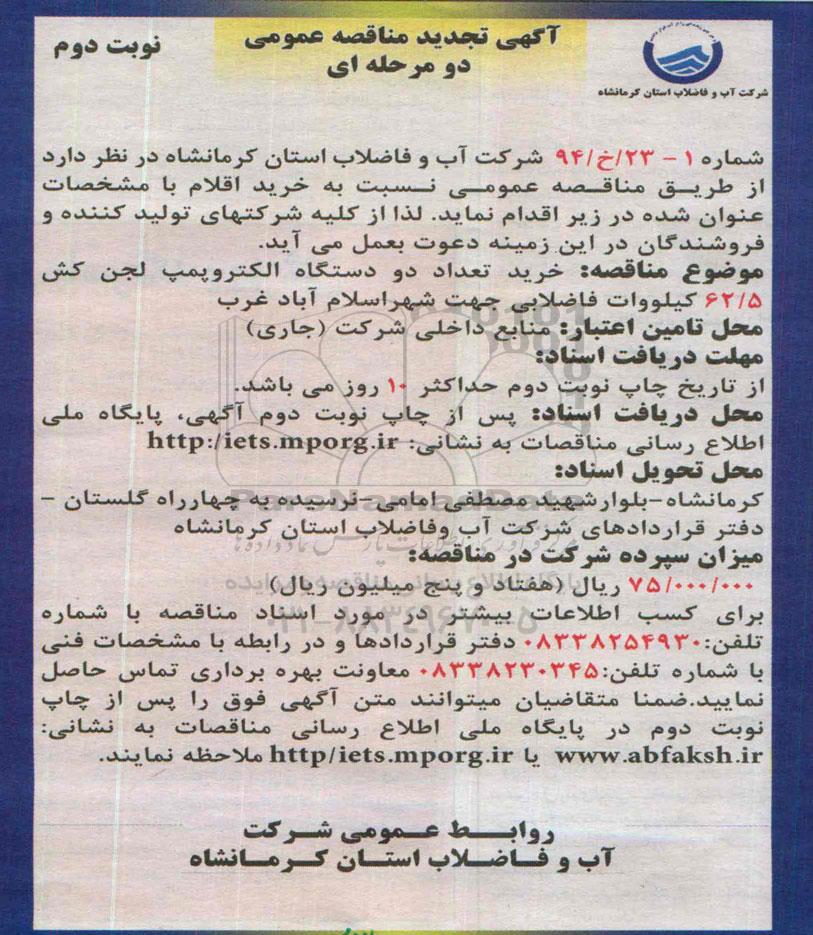 آگهی تجدید مناقصه عمومی
دو مرحله ای
نوبت دوم
شرکت آب و فاضلاب استان کرمانشاه
شماره ۱ - ۲۳/خ/۹۴ شرکت آب و فاضلاب استان کرمانشاه در نظر دارد
از طریق مناقصه عمومی نسبت به خرید اقلام با مشخصات
عنوان شده در زیر اقدام نماید. لذا از کلیه شرکتهای تولید کننده و
فروشندگان در این زمینه دعوت بعمل می آید.
موضوع مناقصه: خرید تعداد دو دستگاه الکتروپمپ لجن کش
۶۲/۵ کیلووات فاضلابی جهت شهراسلام آباد غرب
محل تامین اعتبار: منابع داخلی شرکت (جاری)
مهلت دریافت اسناد:
از تاریخ چاپ نوبت دوم حداکثر ۱۰ روز می باشد.
محل دریافت اسناد: پس از چاپ نوبت دوم آگهی، پایگاه ملی
اطلاع رسانی مناقصات به نشانی: http:/iets.mporg.ir
محل تحویل اسناد:
کرمانشاه-بلوارشهید مصطفی امامی-نرسیده به چهارراه گلستان -
دفتر قراردادهای شرکت آب وفاضلاب استان کرمانشاه
میزان سپرده شرکت در مناقصه:
۷۵/۰۰۰/۰۰۰ ریال (هفتاد و پنج میلیون ریال)
برای کسب اطلاعات بیشتر در مورد اسناد مناقصه با شماره
تلفن:۰۸۳۳۸۲۵۴۹۳۰ دفتر قراردادها و در رابطه با مشخصات فنی
با شماره تلفن:۰۸۳۳۸۲۳۰۳۴۵ معاونت بهره برداری تماس حاصل
نمایید.ضمنا متقاضیان میتوانند متن آگهی فوق را پس از چاپ
نوبت دوم در پایگاه ملی اطلاع رسانی مناقصات به نشانی:
www.abfaksh.ir یا http/iets.mporg.ir ملاحظه نمایند.
روابط عمومی شرکت
آب و فاضلاب استان کرمانشاه
ParsNamadData
۰۲۱-۸۸۳۴۹۶۷۰-۵